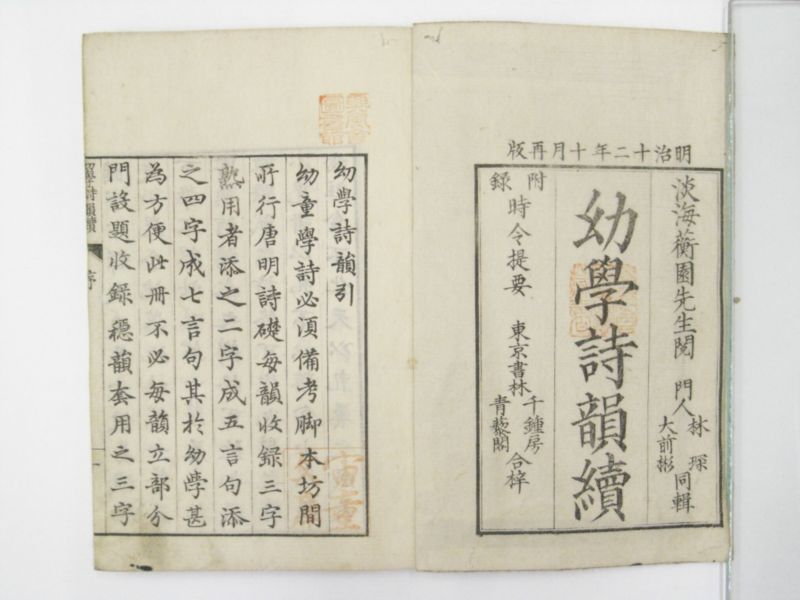 明治十二年十月再版
淡海蘅園先生閲 門人 林 琛 大前彬 同輯
幼學詩韻續
附録 時令提要 東京書林 千鍾房 青藜閣 合梓
幼學詩韻引
幼童學詩必須備考脚本坊間
所行唐明詩礎每韻收録三字
熟用者添之二字成五言句添
之四字成七言句其於幼學甚
為方便此册不必每韻立部分
門設題收録穩韻套用之三字
幼學詩韻續 序
一